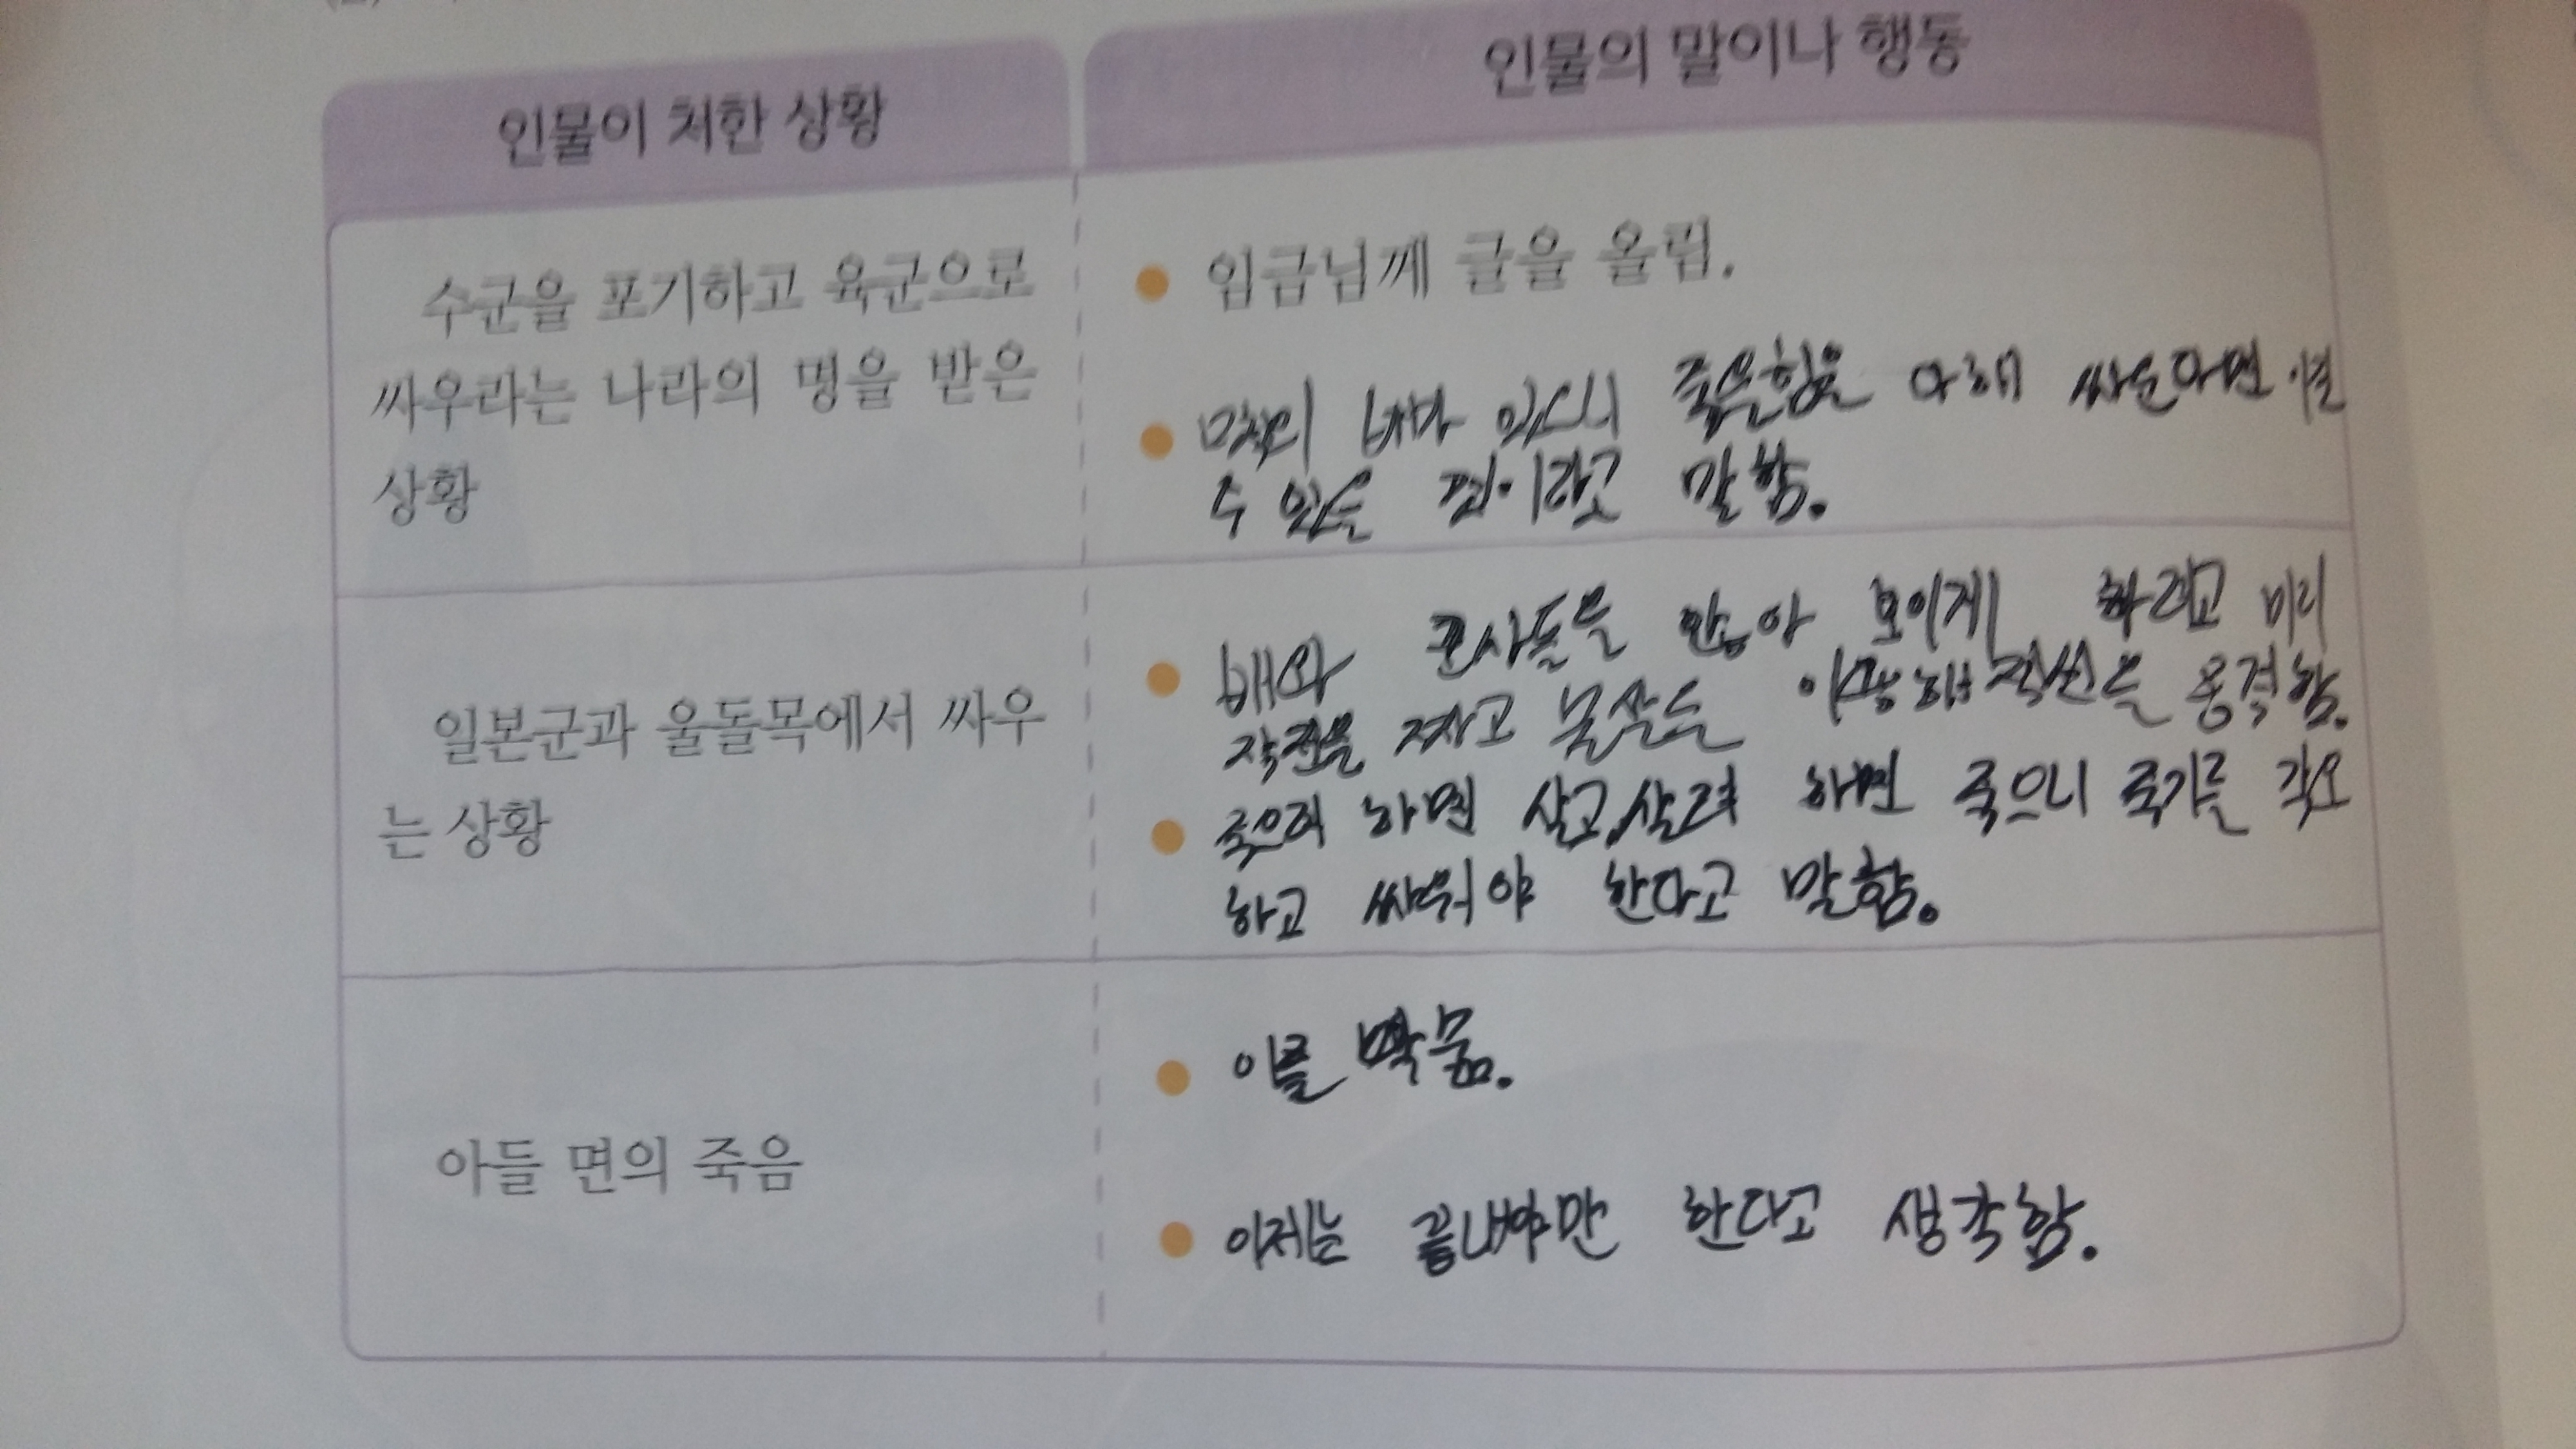 인물이 처한 상황
인물의 말이나 행동
수군을 포기하고 육군으로
싸우라는 나라의 명을 받은
상황
임금님께 글을 올림.
배가 있으니 죽을힘을 다해 싸운다면 이길
수 있을 것이라고 말함.
일본군과 울돌목에서 싸우
는 상황
배와 군사들을 많아 보이게 하려고 미리
작전을 짜고 물살을 이용해 적선을 공격함.
죽으려 하면 살고, 살려 하면 죽으니 죽기를 각오
하고 싸워야 한다고 말함.
아들 면의 죽음
이를 악묾.
이제는 끝내야만 한다고 생각함.